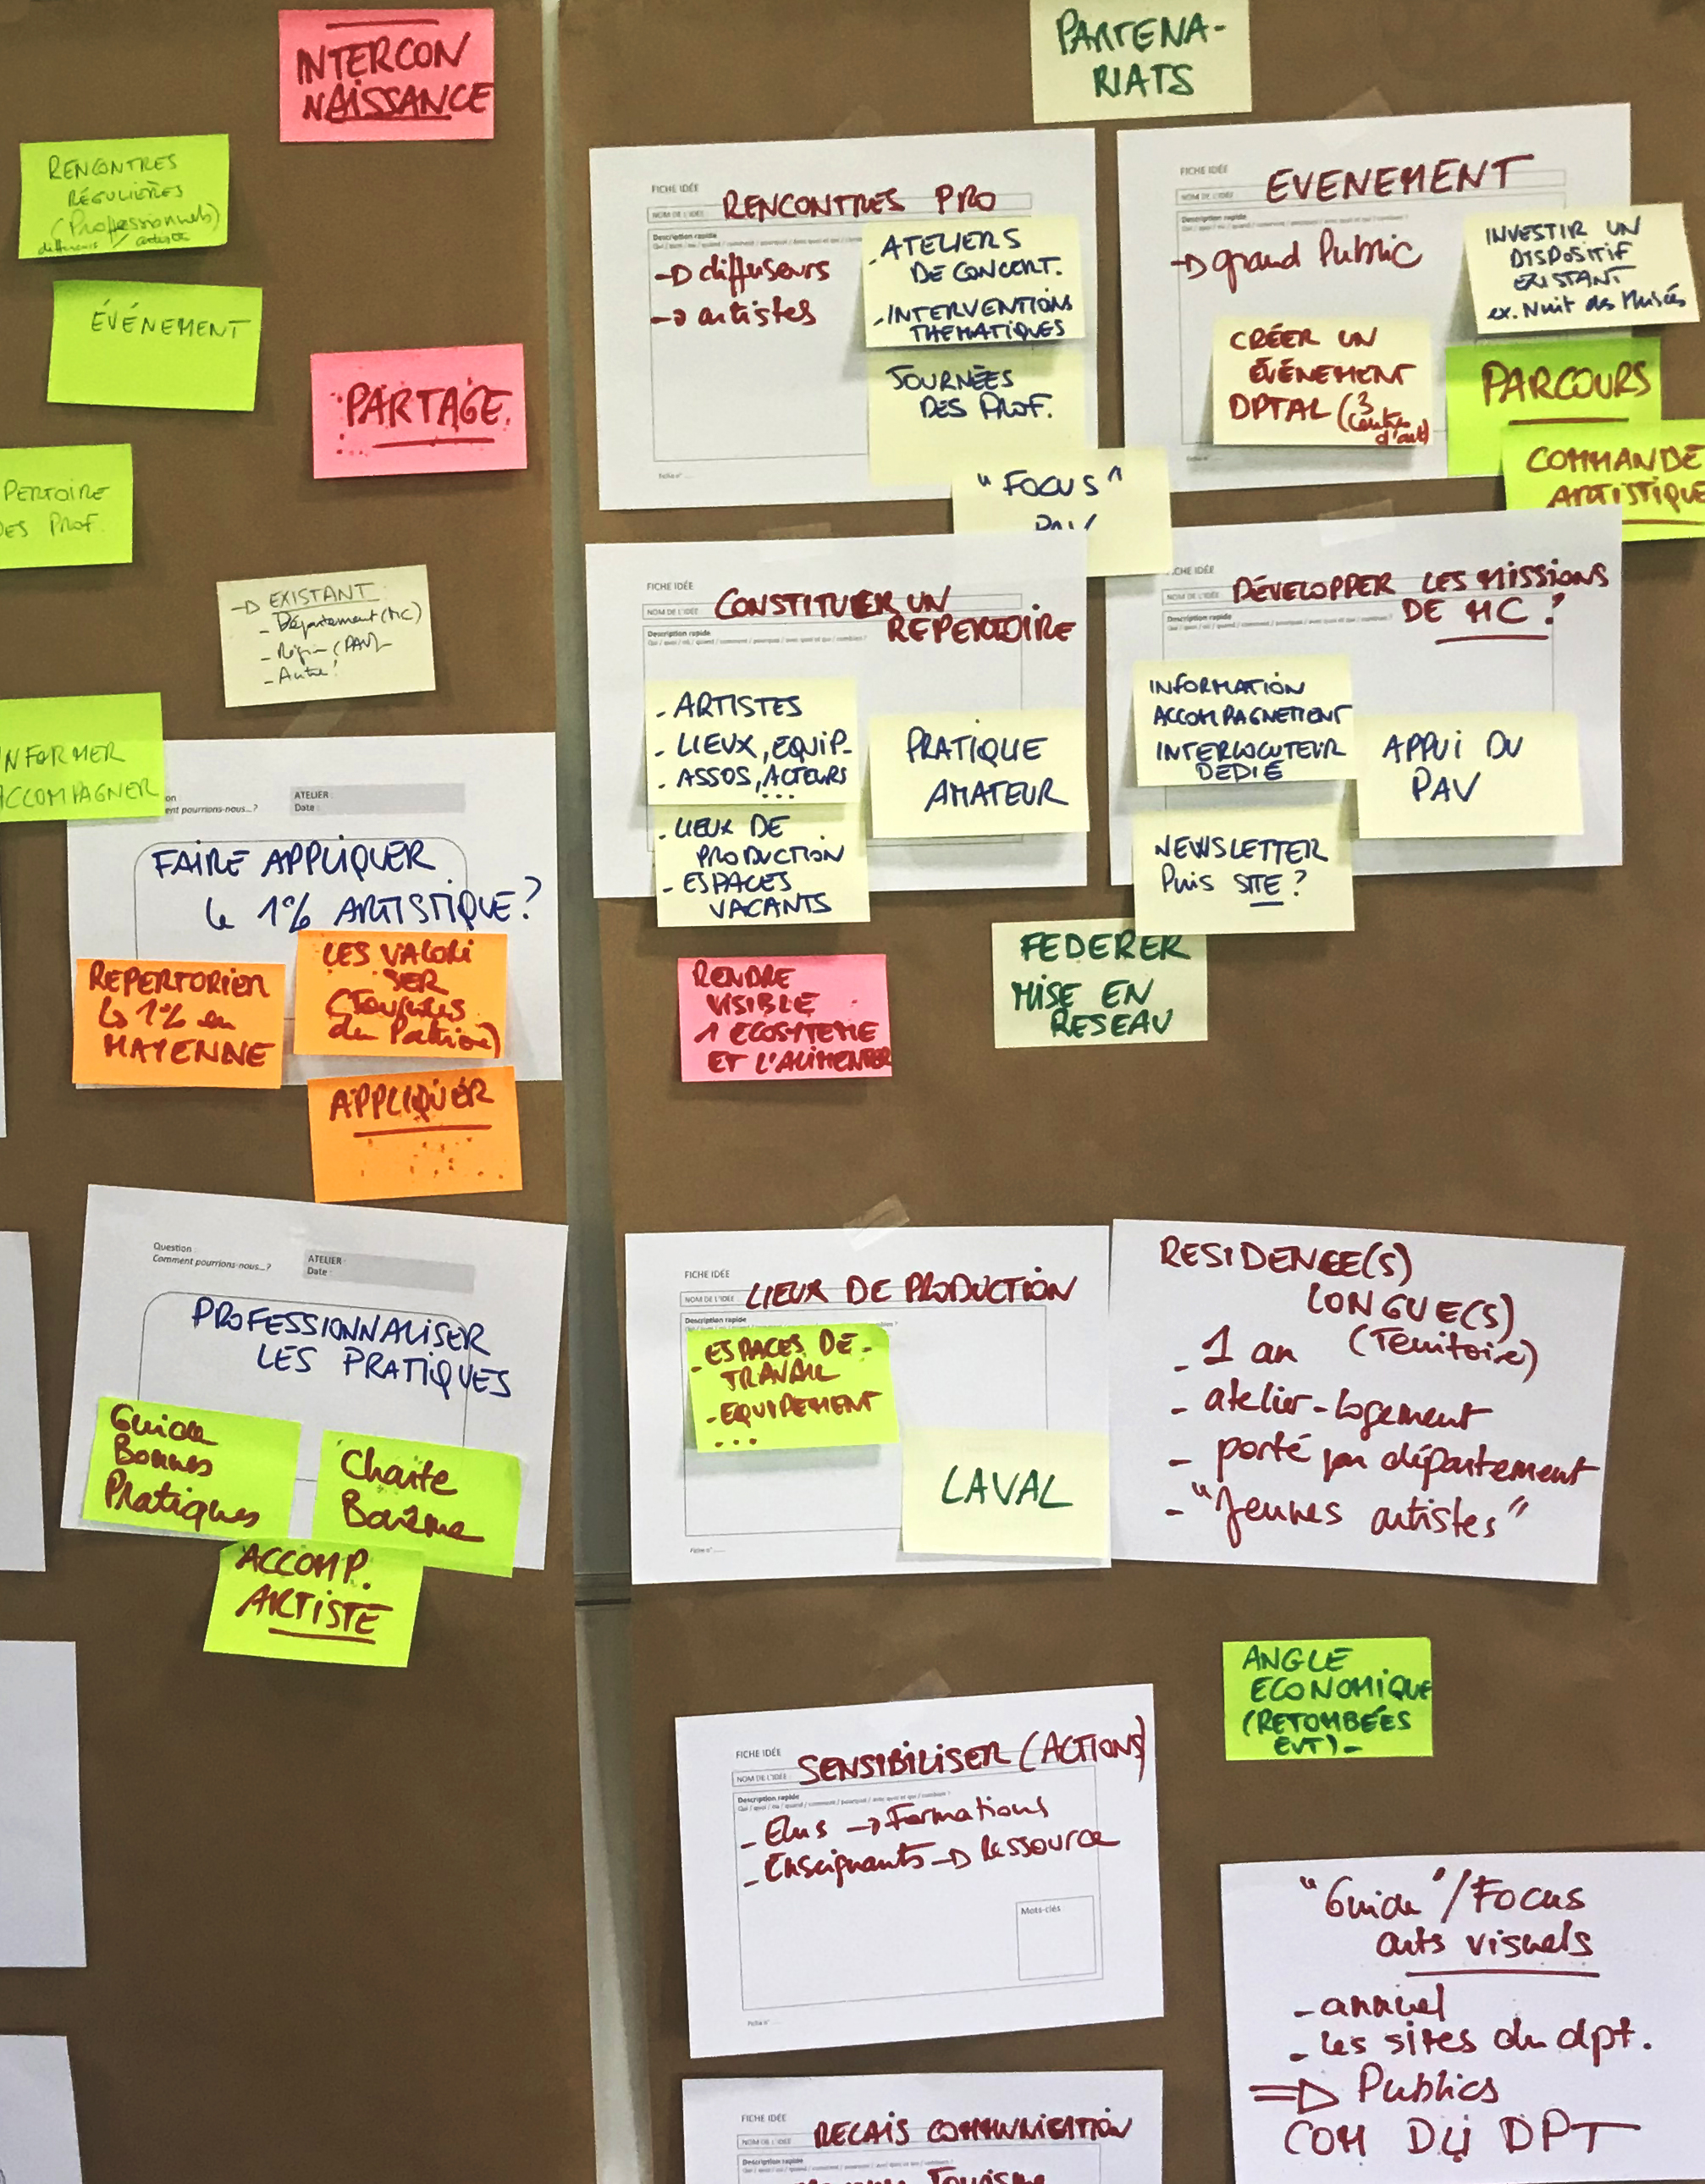 INTERCON
NAISSANCE
RENCONTRES
RÉGULIÈRES
(Professionnels)
différents / artiste
ÉVÉNEMENT
PARTAGE
PERTOIRE
DES PROF.
→ EXISTANT
- Département (MC)
- Région (PAV)
- Autre!
INFORMER
ACCOMPAGNER
ent pourrions-nous...?
ATELIER :
Date :
FAIRE APPLIQUER
le 1% ARTISTIQUE?
REPERTORIER
le 1% en
MAYENNE
LES VALORI
SER
APPLIQUER
Question
Comment pourrions-nous...?
ATELIER :
Date :
PROFESSIONNALISER
LES PRATIQUES
Guide
Bonnes
Pratiques
Charte
Barème
ACCOMP.
ARTISTE
PARTENA-
RIATS
FICHE IDÉE
NOM DE L'IDÉE
RENCONTRES PRO
Description rapide
→ diffuseurs
→ artistes
- ATELIERS
DE CONCERT.
- INTERVENTIONS
THEMATIQUES
JOURNÉES
DES PROF.
"FOCUS"
PAV
FICHE IDÉE
NOM DE L'IDÉE
EVENEMENT
Description rapide
→ grand Public
INVESTIR UN
DISPOSITIF
EXISTANT
ex. Nuit des Musées
CRÉER UN
ÉVÉNEMENT
DPTAL (3
centres
d'art)
PARCOURS
COMMANDE
ARTISTIQUE
FICHE IDÉE
NOM DE L'IDÉE
CONSTITUER UN
REPERTOIRE
Description rapide
- ARTISTES
- LIEUX, EQUIP-
- ASSOS, ACTEURS
...
- LIEUX DE
PRODUCTION
- ESPACES
VACANTS
PRATIQUE
AMATEUR
CHE IDÉE
NOM DE L'IDÉE
DÉVELOPPER LES MISSIONS
DE MC?
INFORMATION
ACCOMPAGNEMENT
INTERLOCUTEUR
DEDIÉ
APPUI DU
PAV
NEWSLETTER
Puis SITE?
RENDRE
VISIBLE
1 ECOSYTEME
ET L'ALIMENTER
FEDERER
MISE EN
RESEAU
FICHE IDÉE
NOM DE L'IDÉE
LIEUX DE PRODUCTION
Description rapide
- ESPACES DE-
TRAVAIL
- EQUIPEMENT
...
LAVAL
Fiche n° .....
RESIDENCE(S)
LONGUE(S)
(Territoire)
- 1 an
- atelier-logement
- porté par département
- "Jeunes artistes"
ANGLE
ECONOMIQUE
(RETOMBÉES
EVT)-
FICHE IDÉE
NOM DE L'IDÉE
SENSIBILISER (ACTIONS)
Description rapide
- Elus → Formations
- Enseignants → Ressource
Mots-clés
Fiche n°
"Guide"/Focus
arts visuels
- annuel
- les sites du dpt.
⇒ Publics
COM DU DPT
FICHE IDÉE
NOM DE L'IDÉE
RELAIS COMMUNICATION
Description rapide
Tourisme